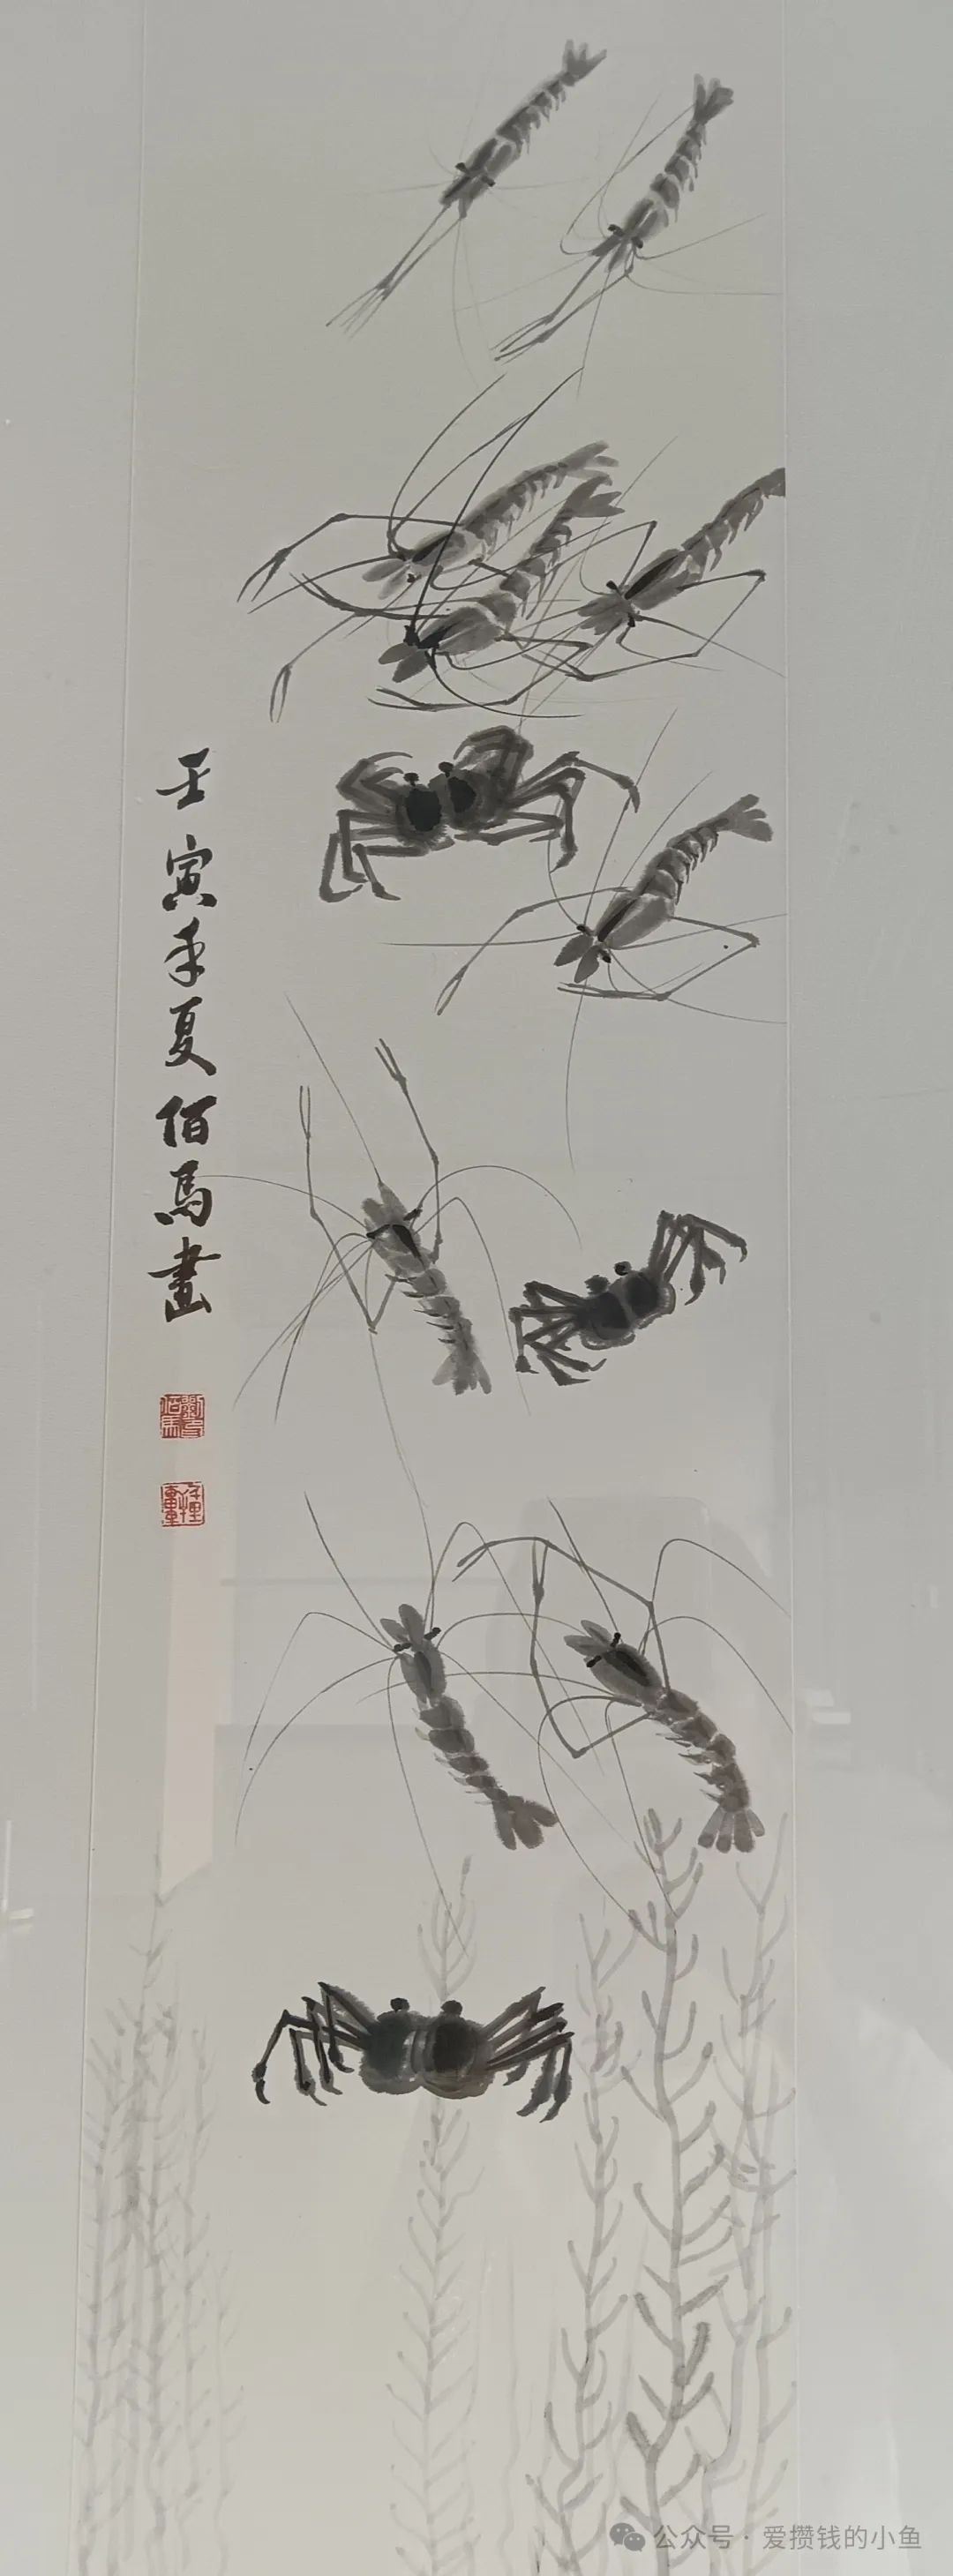 壬寅年夏佰馬畫
公众号 · 爱攒钱的小鱼